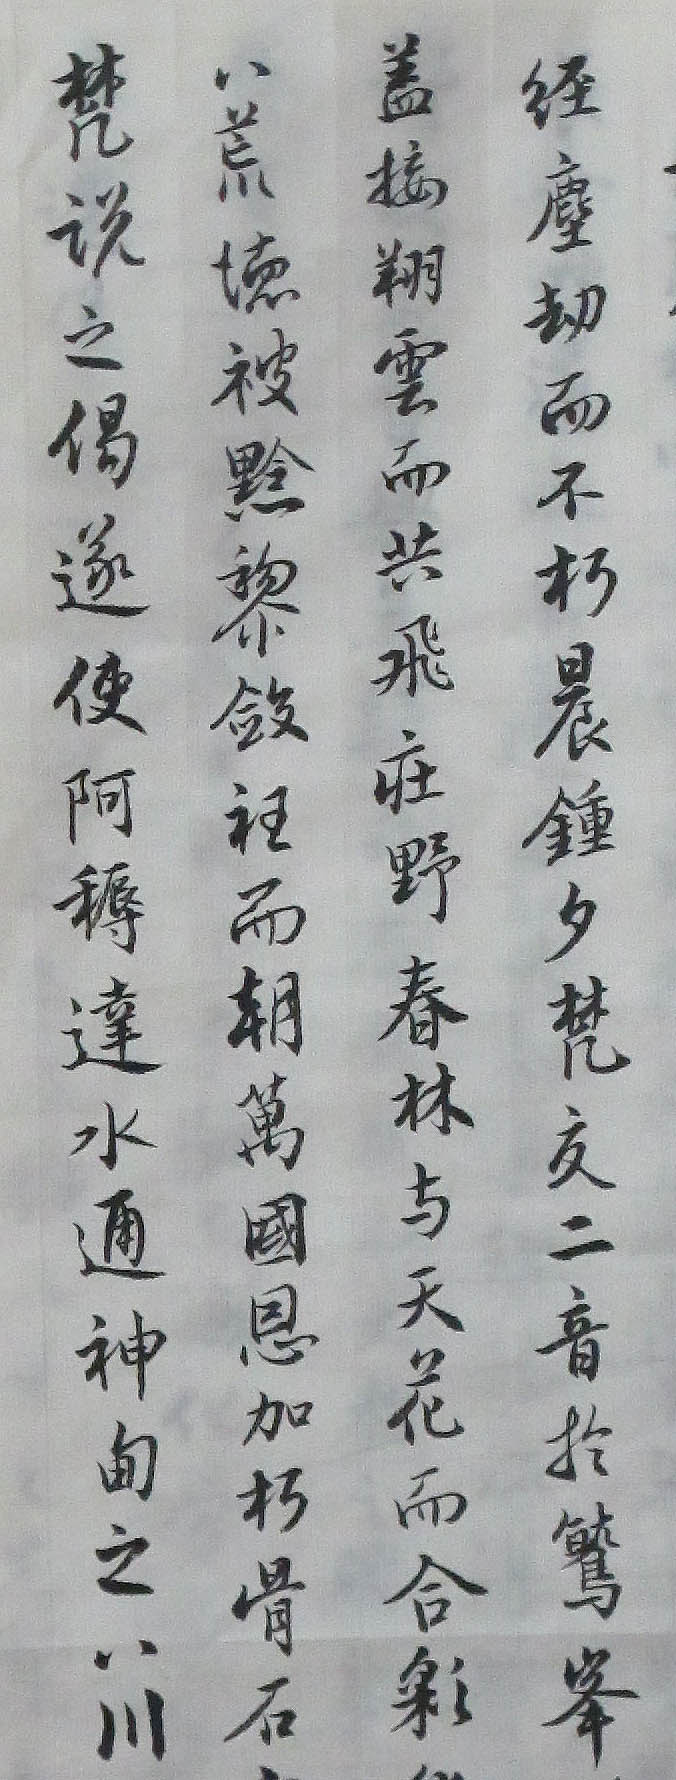 經塵劫而不朽晨鍾夕梵交二音於鷲峯
盖接翔雲而共飛莊野春林与天花而合彩
八荒德被黔黎斂衽而朝萬國恩加朽骨石
梵説之偈遂使阿耨達水通神甸之八川